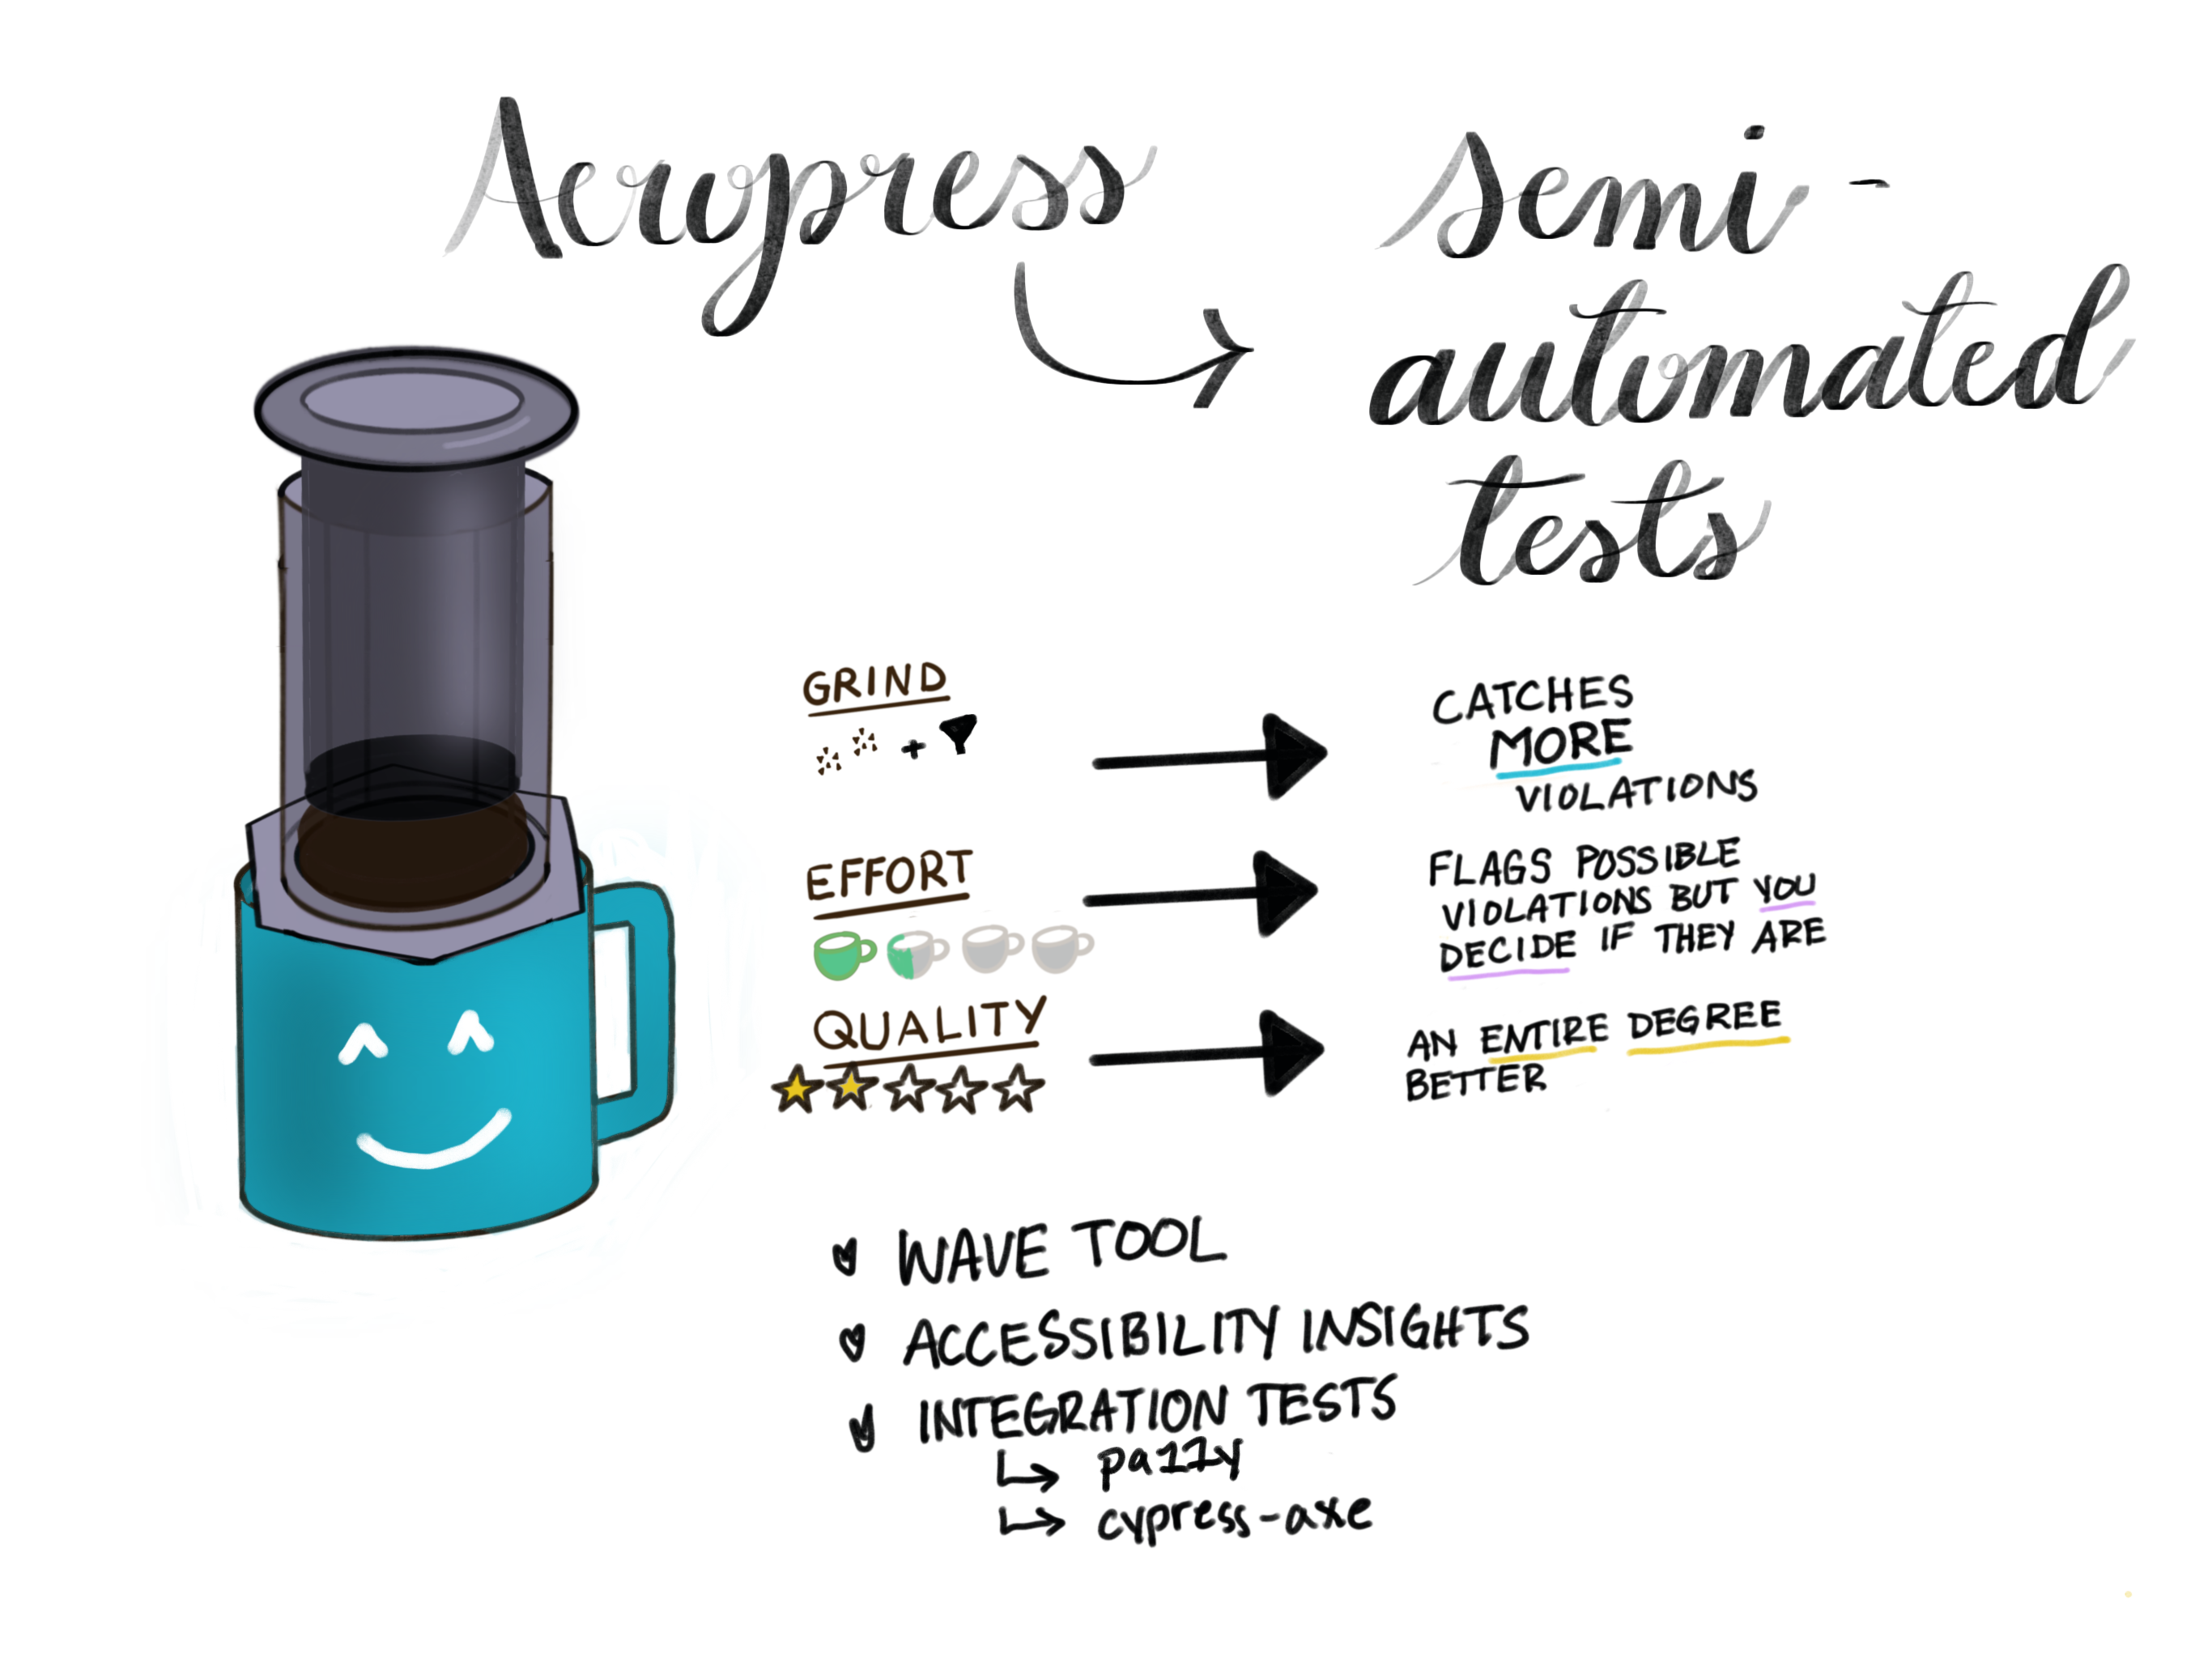 Aeropress
semi-
automated
tests
GRIND
+
CATCHES
MORE
VIOLATIONS
EFFORT
FLAGS POSSIBLE
VIOLATIONS BUT YOU
DECIDE IF THEY ARE
QUALITY
AN ENTIRE DEGREE
BETTER
WAVE TOOL
ACCESSIBILITY INSIGHTS
INTEGRATION TESTS
pa11y
cypress-axe